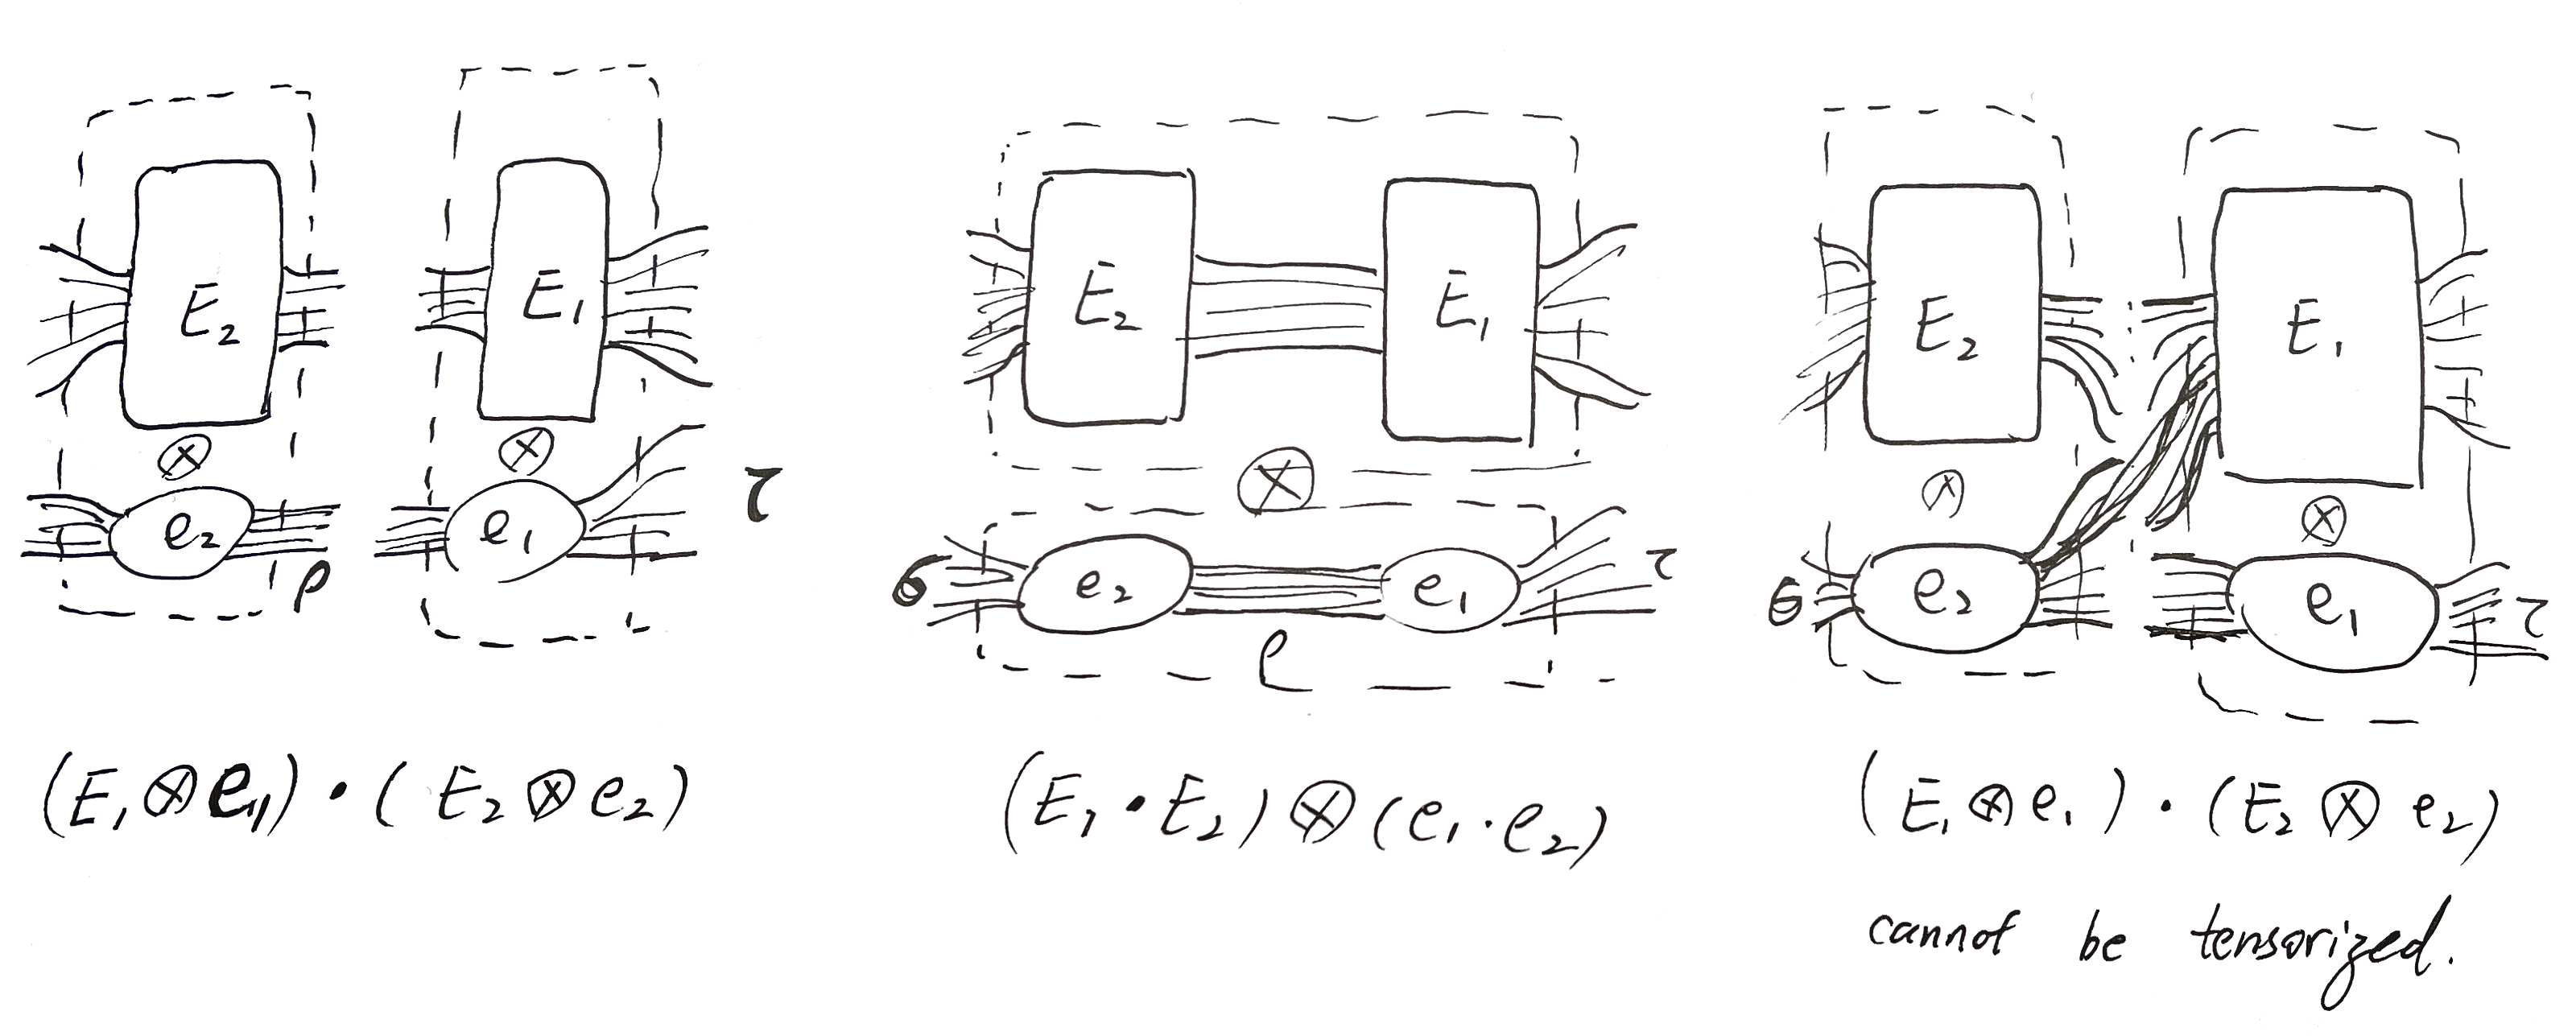 E₂ E₁
⊗ ⊗
e₂ e₁ τ
ρ
(E₁ ⊗ e₁) · (E₂ ⊗ e₂)
E₂ E₁
⊗
σ e₂ e₁ τ
ρ
(E₁ · E₂) ⊗ (e₁ · e₂)
E₂ E₁
⊗ ⊗
σ e₂ e₁ τ
(E₁ ⊗ e₁) · (E₂ ⊗ e₂)
cannot be tensorized.